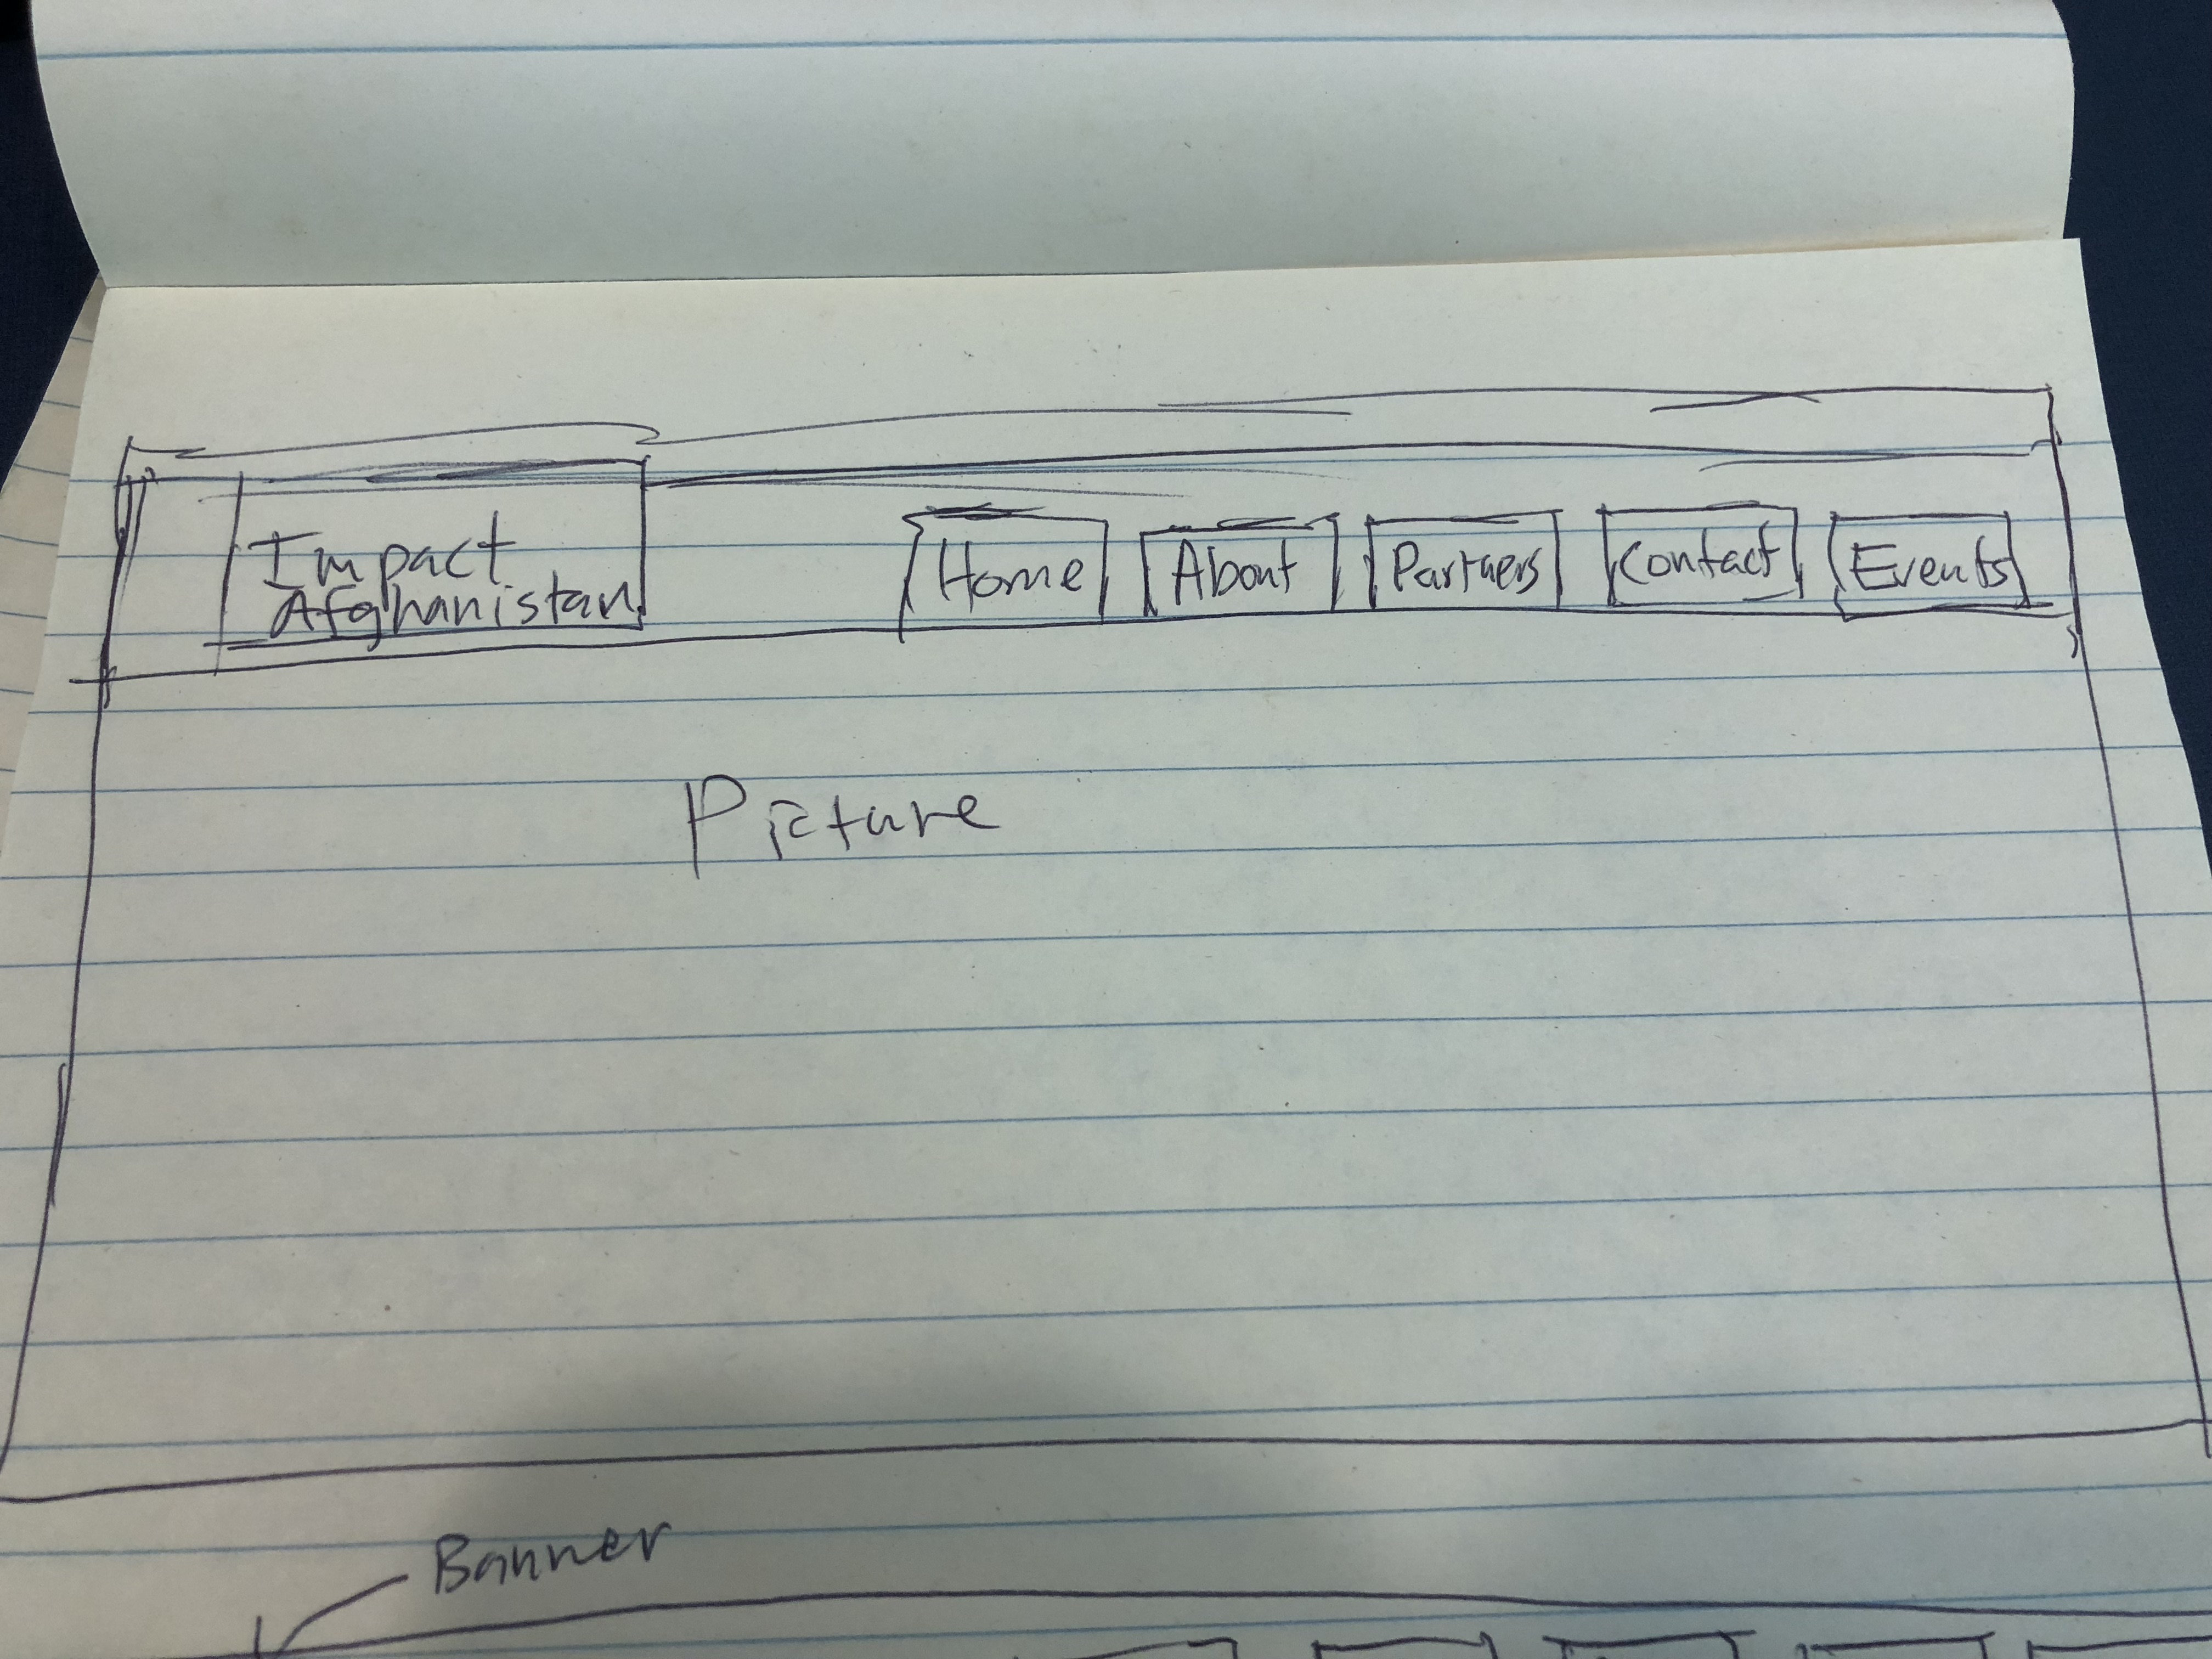 Impact
Afghanistan
Home
About
Partners
Contact
Events
Picture
Banner